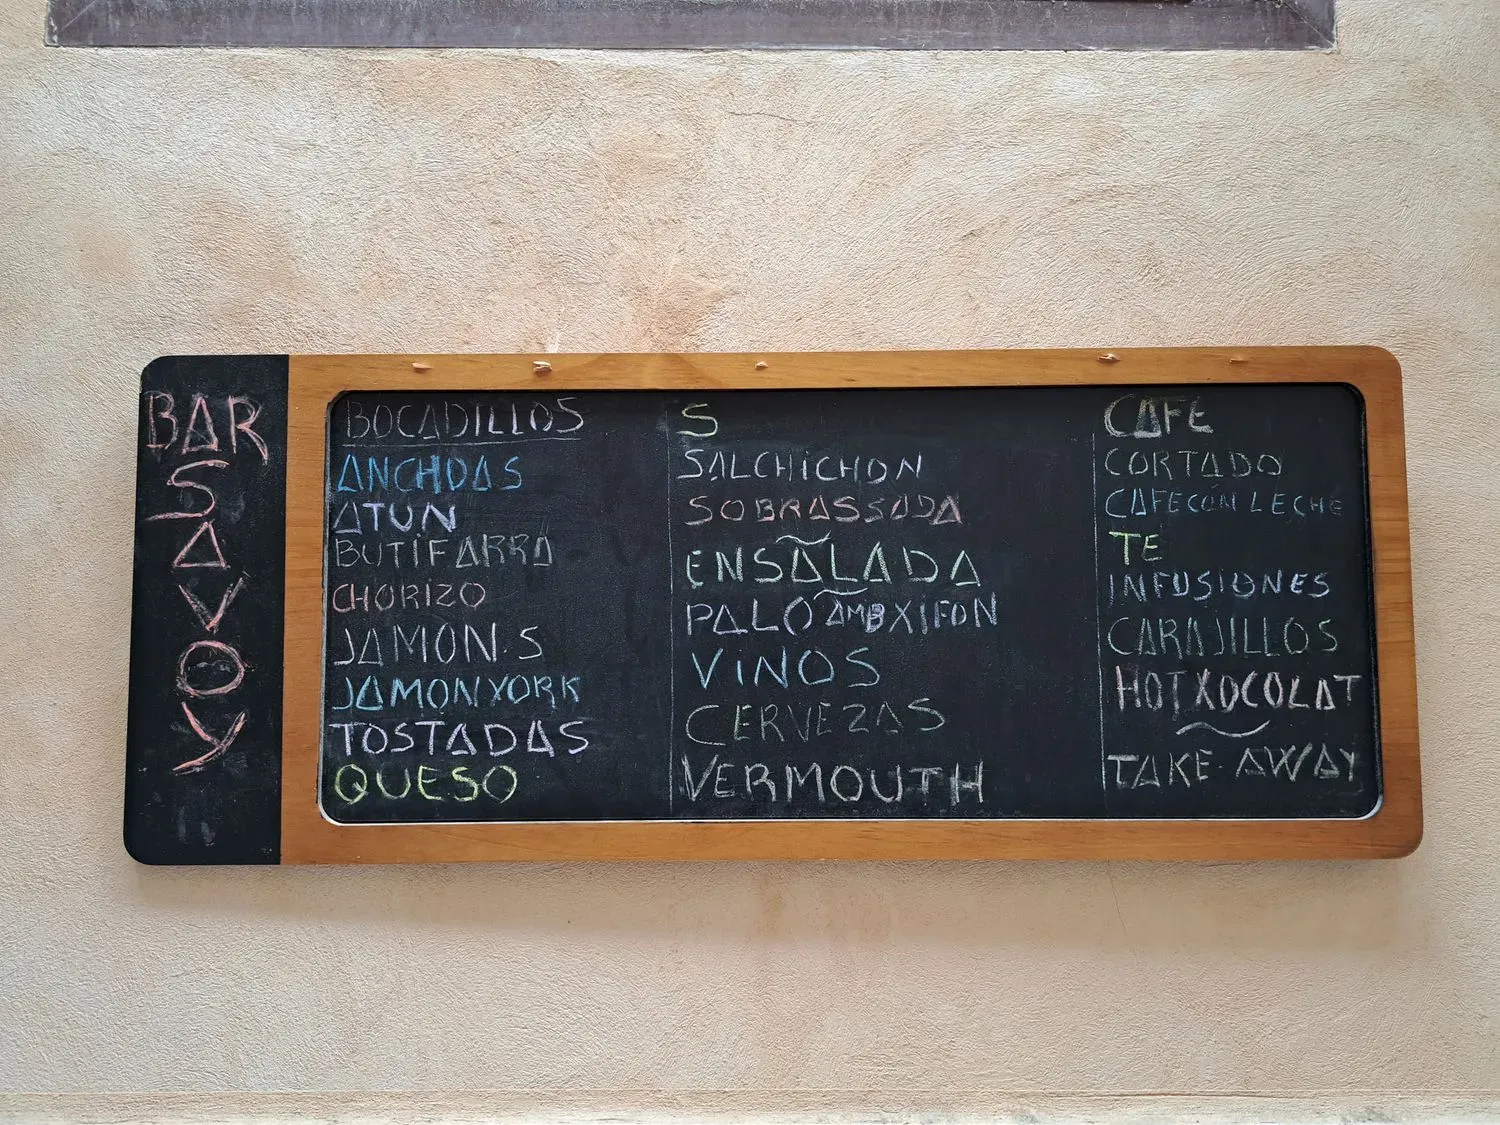 BAR
SAVOY
BOCADILLOS
ANCHOAS
ATUN
BUTIFARRA
CHORIZO
JAMON.S
JAMON YORK
TOSTADAS
QUESO
S
SALCHICHON
SOBRASSADA
ENSALADA
PALO AMB XIFON
VINOS
CERVEZAS
VERMOUTH
CAFE
CORTADO
CAFE CON LECHE
TE
INFUSIONES
CARAJILLOS
HOT XOCOLAT
TAKE-AWAY